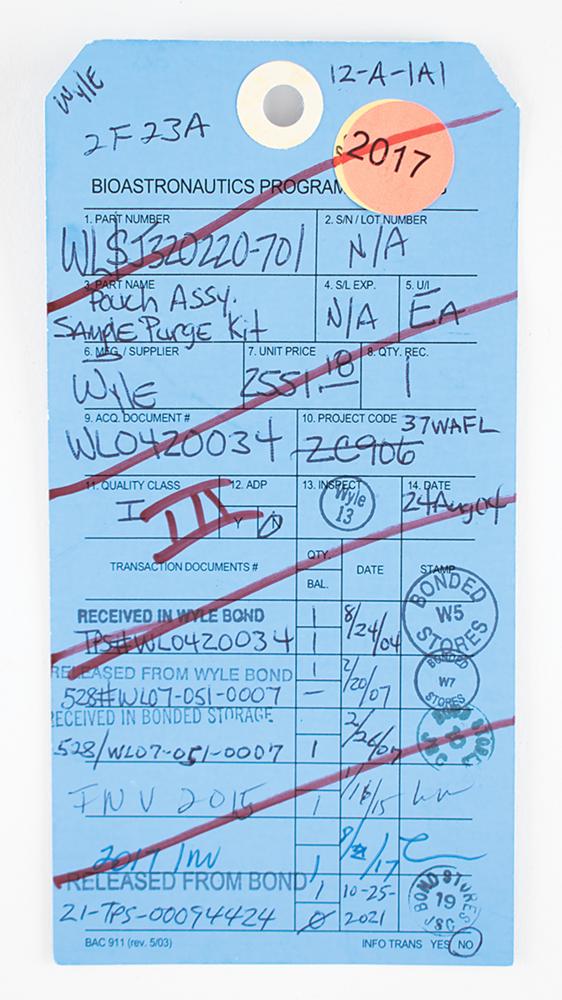 Wyle
12-A-1A1
2F23A
2017
BIOASTRONAUTICS PROGRAM
1. PART NUMBER
2. S/N / LOT NUMBER
WL$J320220-701
N/A
3. PART NAME
4. S/L EXP.
5. U/I
Pouch Assy.
Sample Purge Kit
N/A
EA
6. MFG. / SUPPLIER
7. UNIT PRICE
8. QTY. REC.
Wyle
2551.18
1
9. ACQ. DOCUMENT #
10. PROJECT CODE 37WAFL
WL0420034
ZC906
11. QUALITY CLASS
12. ADP
13. INSPECT
14. DATE
I III
Y N
Wyle 13
24Aug04
TRANSACTION DOCUMENTS #
QTY.
BAL.
DATE
STAMP
RECEIVED IN WYLE BOND
1
8/24/04
BONDED W5 STORES
TPS#WL0420034
1
RELEASED FROM WYLE BOND
1
2/20/07
BONDED W7 STORES
528#WL07-051-0007
—
RECEIVED IN BONDED STORAGE
2/26/07
528/WL07-051-0007
1
INV 2015
1
1/16/15
2017 INV
1
RELEASED FROM BOND
1
10-25-2021
BOND STORES 19 JSC
21-TPS-00094424
0
BAC 911 (rev. 5/03)
INFO TRANS YES NO